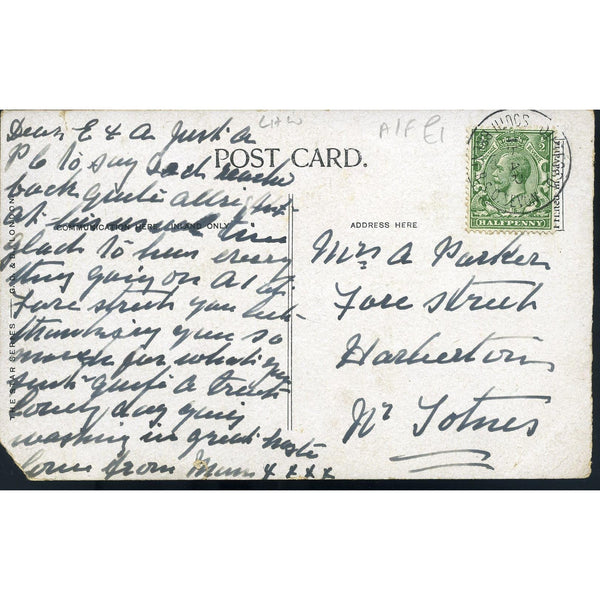 Dear E & A Just a
P C to say reached
back quite allright
at his usual time
glad to hear every
thing going on A1 at
Fore street you
thanking you so
much for what you
sent quite a treat
lovely day going
washing in great haste
love from Mum x x x x
POST CARD.
COMMUNICATION HERE. INLAND ONLY
ADDRESS HERE
A/F £1
HALFPENNY
Mrs A Parker
Fore street
Harberton
Nr Totnes
THE STAR SERIES — G.D. & D. LONDON